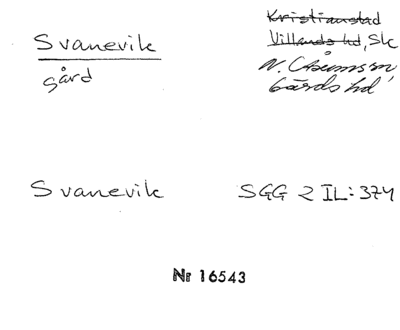 Svanevik
gård
Kristianstad
Villands hd, Sk
N. Åsums sn
Gärds hd
Svanevik
SGG 2 IL: 374
Nr 16543